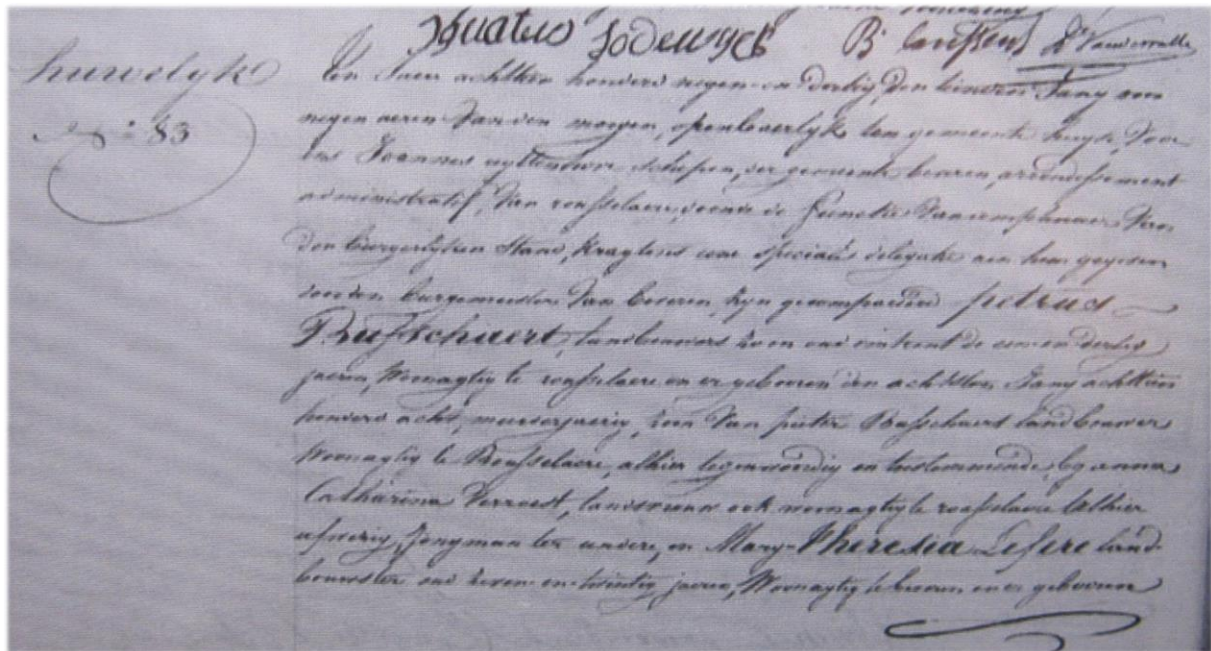 Ignatius Lodewyck B. Clarissen D. Vandewalle
huwelyk
N° 83
Ten Jaere achttien honderd negen-en-dertig, den eersten Juny, voor
negen ueren van den morgen, openbaerlyk ten gemeente huyse, Voor
ons Joannes uyttenhove schepen, der gemeente beveren, arrondissement
administratif, van rousselaere, doende de functie van amptenaer Van
den burgerlyken Stand, kragtens eene speciale delegatie aen hem gegeven
door den burgemeester van beveren, zyn gecompareerd petrus
Busschaert, landbouwers zoon oud omtrent de een-en-dertig
jaeren, Woonagtig te rousselaere en er gebooren den achtsten Juny achttien
honderd acht, meerderjaerig, zoon van pieter Busschaert landbouwer
Woonagtig te Rousselaere, alhier tegenwoordig en toestemmende, by anna
Catharina Verroest, landvrouw ook woonagtig te rousselaere alhier
afwezig, Jongman ter eendere, en Mary-Theresia Lefere land-
bouwster oud zeven-en-twintig jaeren, Woonagtig te beveren en er gebooren